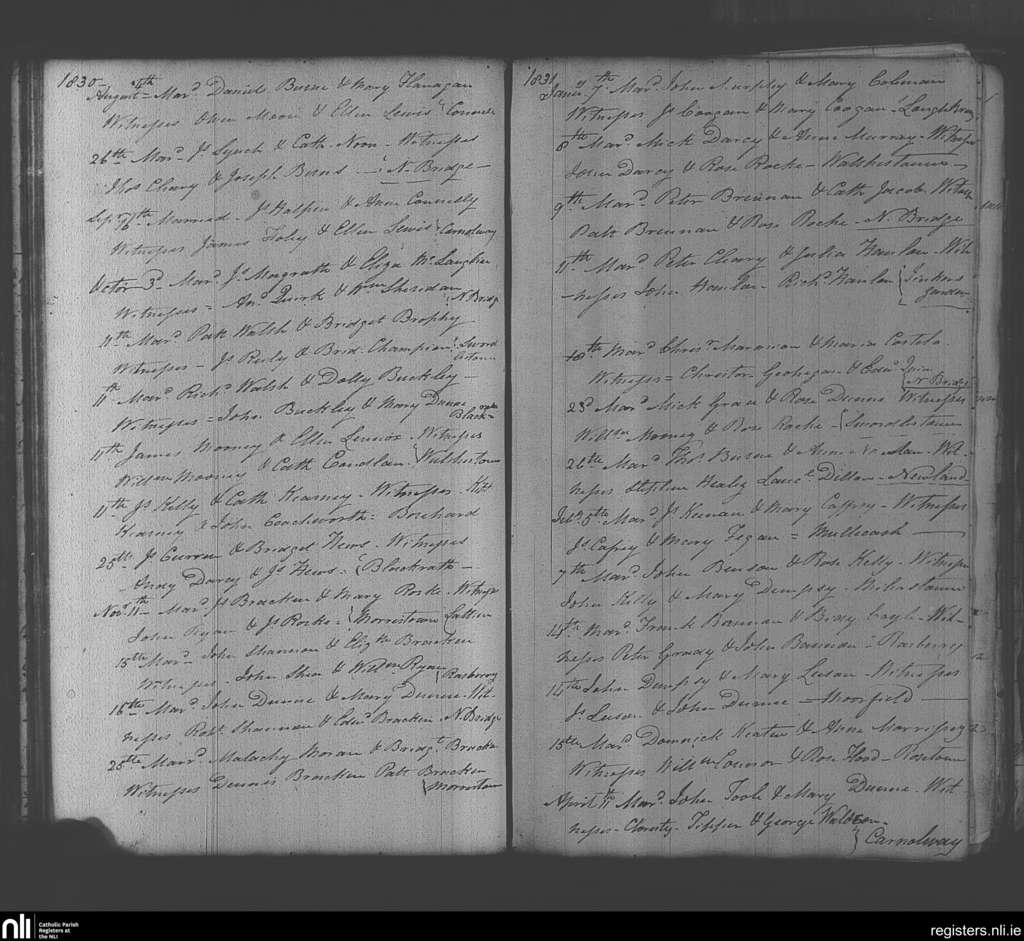 1830
August 4th Mard Daniel Burne & Mary Flanagan
Witnesses Owen Moore & Ellen Lewis
26th Mard Js Lynch & Cath Noon - Witnesses
Thos Cleary & Joseph Burns - N. Bridge -
Sep 16th Married Js Halpen & Anne Connelly
Witnesses James Foley & Ellen Lewis Carnolway
Octor 3d Mard Js Magrath & Eliza McLaughlin
Witnesses = Quirk & Wm Sheridan N. Bridge
11th Mard Patt Walsh & Bridget Brophy
Witnesses - Js Reily & Brid. Champion
11th Mard Richd Walsh & Dolly Buckley -
Witnesses = John Buckley & Mary Dunne
Black=
11th James Mooney & Ellen Lennox Witnesses
Willm Mooney & Cath Walshestown
11th Js Kelly & Cath Kearney - Witnesses
Kearney & John Coachworth = Borehard
25th Js Curran & Bridget Hews - Witnesses
Andy Darcy & Js Hews = Blackrath -
Novr 11th Mard Js Bracken & Mary Roche - Witnesses
John Ryan & Js Roche = Morristown
15th Mard John Shannon & Elizth Bracken
Witnesses - John Shea & Willm Ryan Rosberry
16th Mard John Dunne & Mary Dunne - Wit-
nesses Robt Shannon & Edwd Bracken - N. Bridge
25th Mard Malachy Moran & Bridgt Bracken
Witnesses Dennis Bracken Patt Bracken
Morristown
1831
7th Mard John Murphy & Mary Colman
Witnesses Js Coogan & Mary Coogan
8th Mard Mick Darcy & Anne Murray - Witnesses
John Darcy & Rose Roche - Walshestown -
9th Mard Peter Brennan & Cath Jacob Witness
Patt Brennan & Rose Roche - N. Bridge
11th Mard Peter Cleary & Judia Hanlan - Wit
nesses John Hanlan - Richd Hanlan
18th Mard Christr & Maria Costelo
Witness = Christon Geohegan & Edwd
N. Bridge
23d Mard Mick Grace & Rose Dunne Witnesses
Willm Mooney & Rose Roche - Swordlestown
26th Mard Thos Burne & Anne Nowlan - Wit-
nesses Stephen Healy Laurce Dillon - Newland
5th Mard Js Keenan & Mary Caffry - Witnesses
Js Capry & Mary Fegan = Mullecash -
7th Mard John Benson & Rose Kelly - Witnesses
John Kelly & Mary Dempsy - Milestown
14th Mard Frank Bannan & Bidy - Wit-
nesses Peter Grady & John Bannan - Rosberry
14th John Dempsy & Mary Leeson - Witnesses
Js Leeson & John Dunne - Moorfield -
15th Mard Domnick Keaten & Anne Morrissey
Witnesses Willm Connor & Rose Flood - Rosetown
April 11th Mard John Toole & Mary Dunne - Wit
nesses - Christy Tipper & George Waldron -
Carnolway
nli
Catholic Parish
Registers at
the NLI
registers.nli.ie